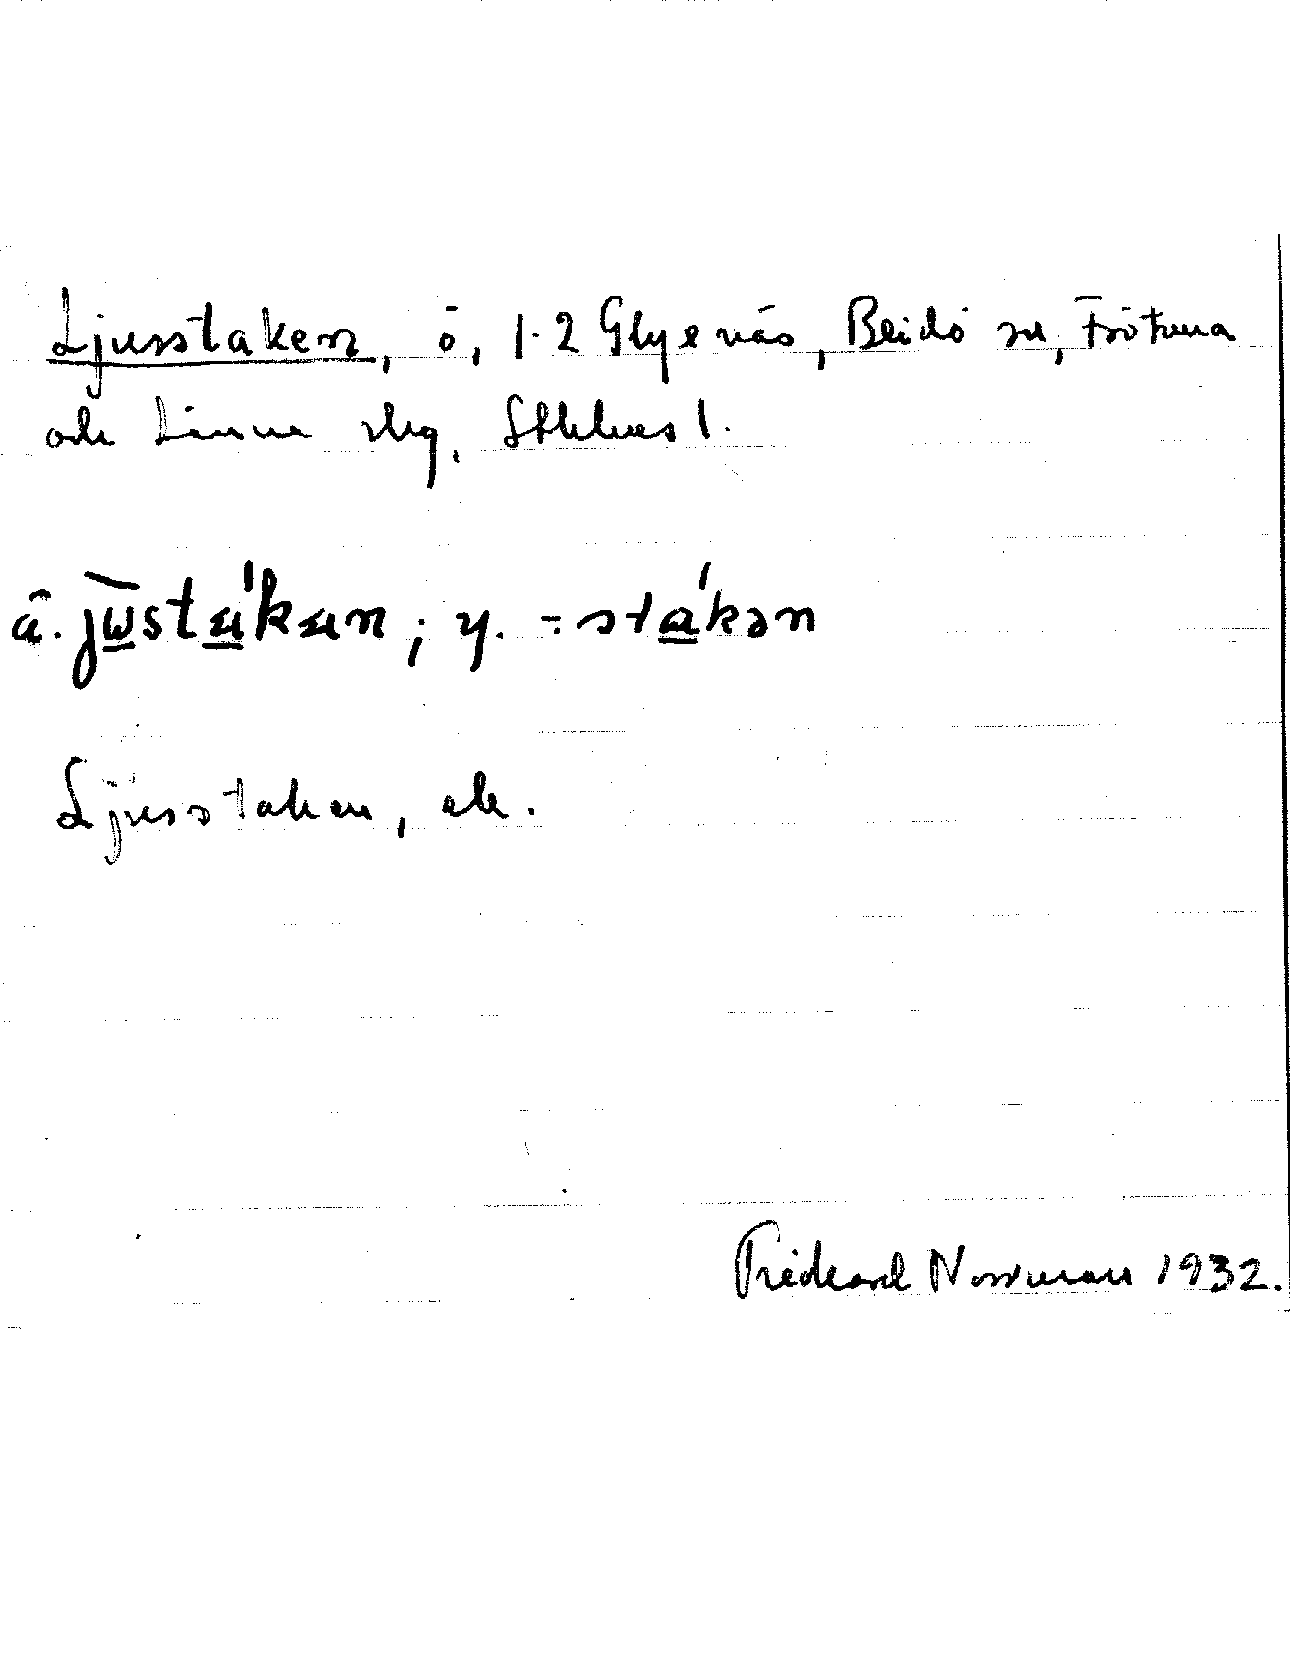 Ljusstaken, ö, 1·2 Glyxnäs, Blidö sn, Frötuna
och Länna skg, Sthlms l.
ä. jùstákan; y. -stákən
Ljusstaken, ek.
Rickard Norrman 1932.